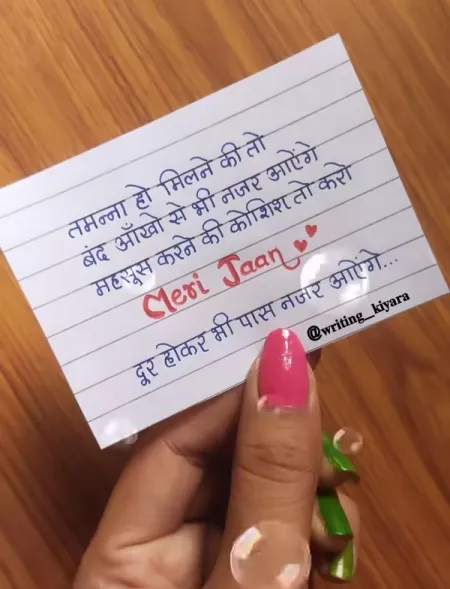 तमन्ना हो मिलने की तो
बंद आँखो से भी नजर आएंगे
महसूस करने की कोशिश तो करो
Meri Jaan
दूर होकर भी पास नजर आएंगे...
@writing_kiyara